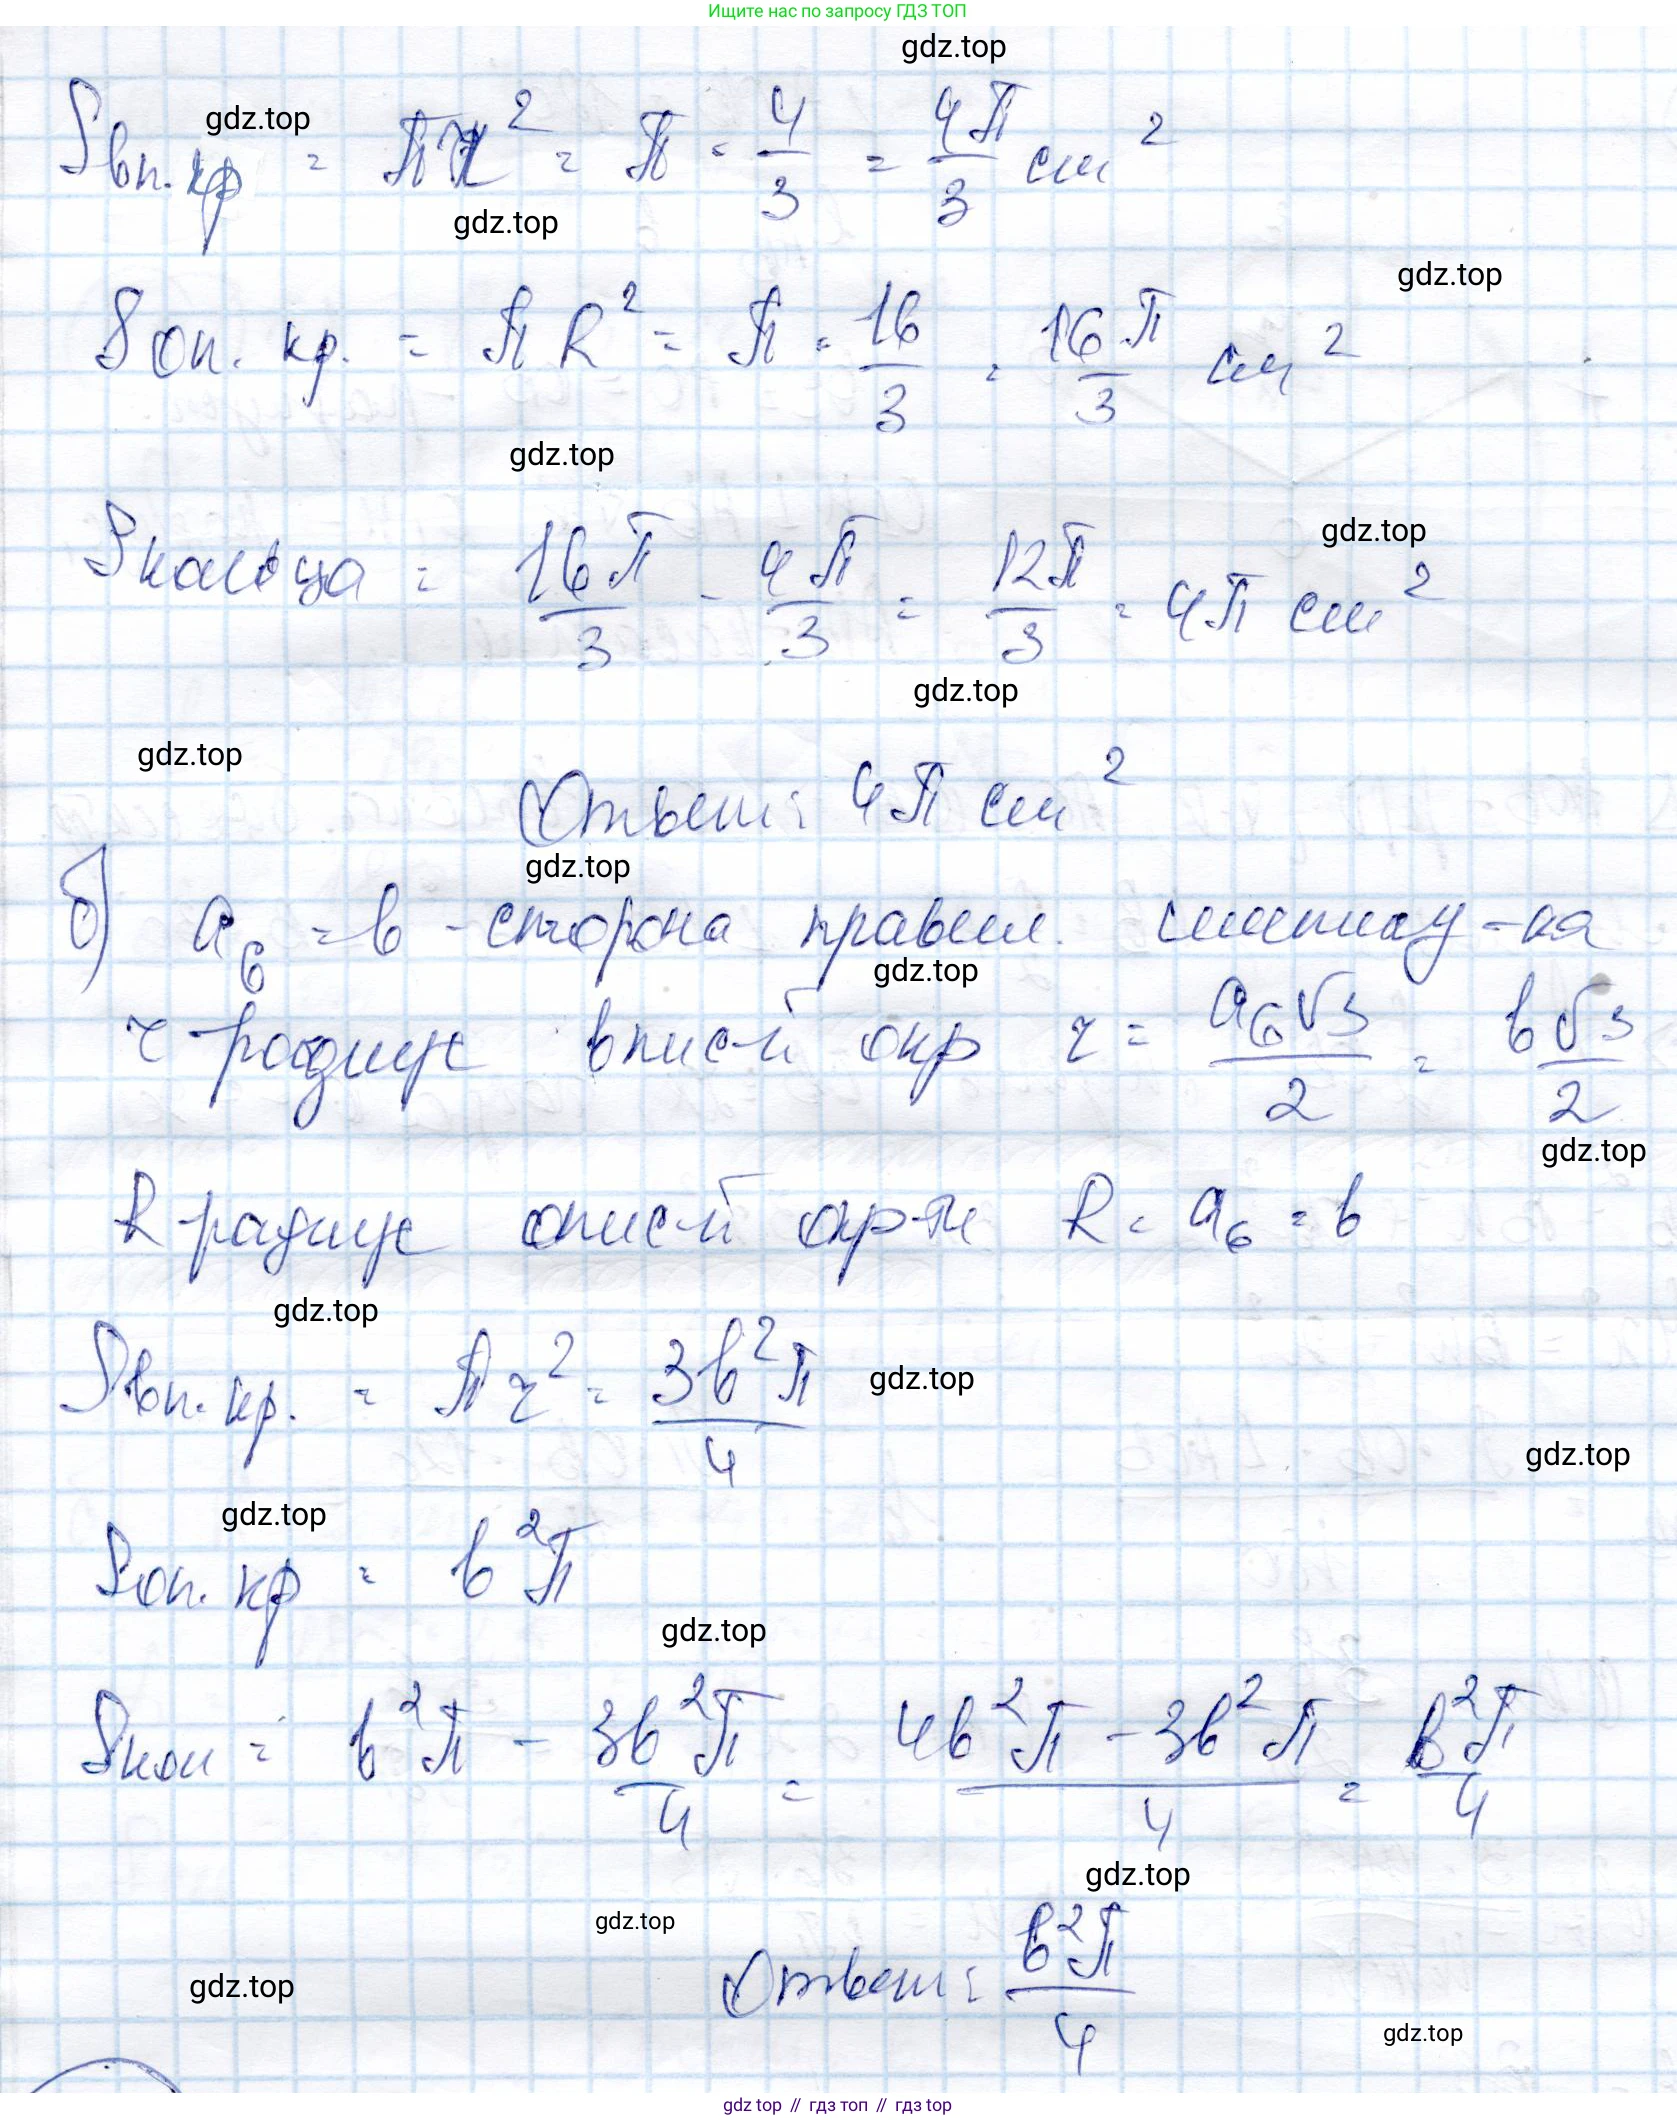 Ищите нас по запросу ГДЗ ТОП
gdz.top
gdz.top
Sвп.кр = πr² = π · 4/3 = 4π/3 см²
gdz.top
gdz.top
Sоп. кр. = πR² = π · 16/3 = 16π/3 см²
gdz.top
gdz.top
Sкольца = 16π/3 - 4π/3 = 12π/3 = 4π см²
gdz.top
gdz.top
Ответ: 4π см²
gdz.top
б) a₆ = b - сторона правил. шестиуг-ка
gdz.top
r - радиус впис-й окр r = a₆√3/2 = b√3/2
gdz.top
R радиус опис-й окр-ти R = a₆ = b
gdz.top
Sвп. кр. = πr² = 3b²π/4
gdz.top
gdz.top
gdz.top
Sоп. кр = b²π
gdz.top
Sкол = b²π - 3b²π/4 = 4b²π - 3b²π/4 = b²π/4
gdz.top
gdz.top
Ответ: b²π/4
gdz.top
gdz.top
gdz top // гдз топ // гдз top